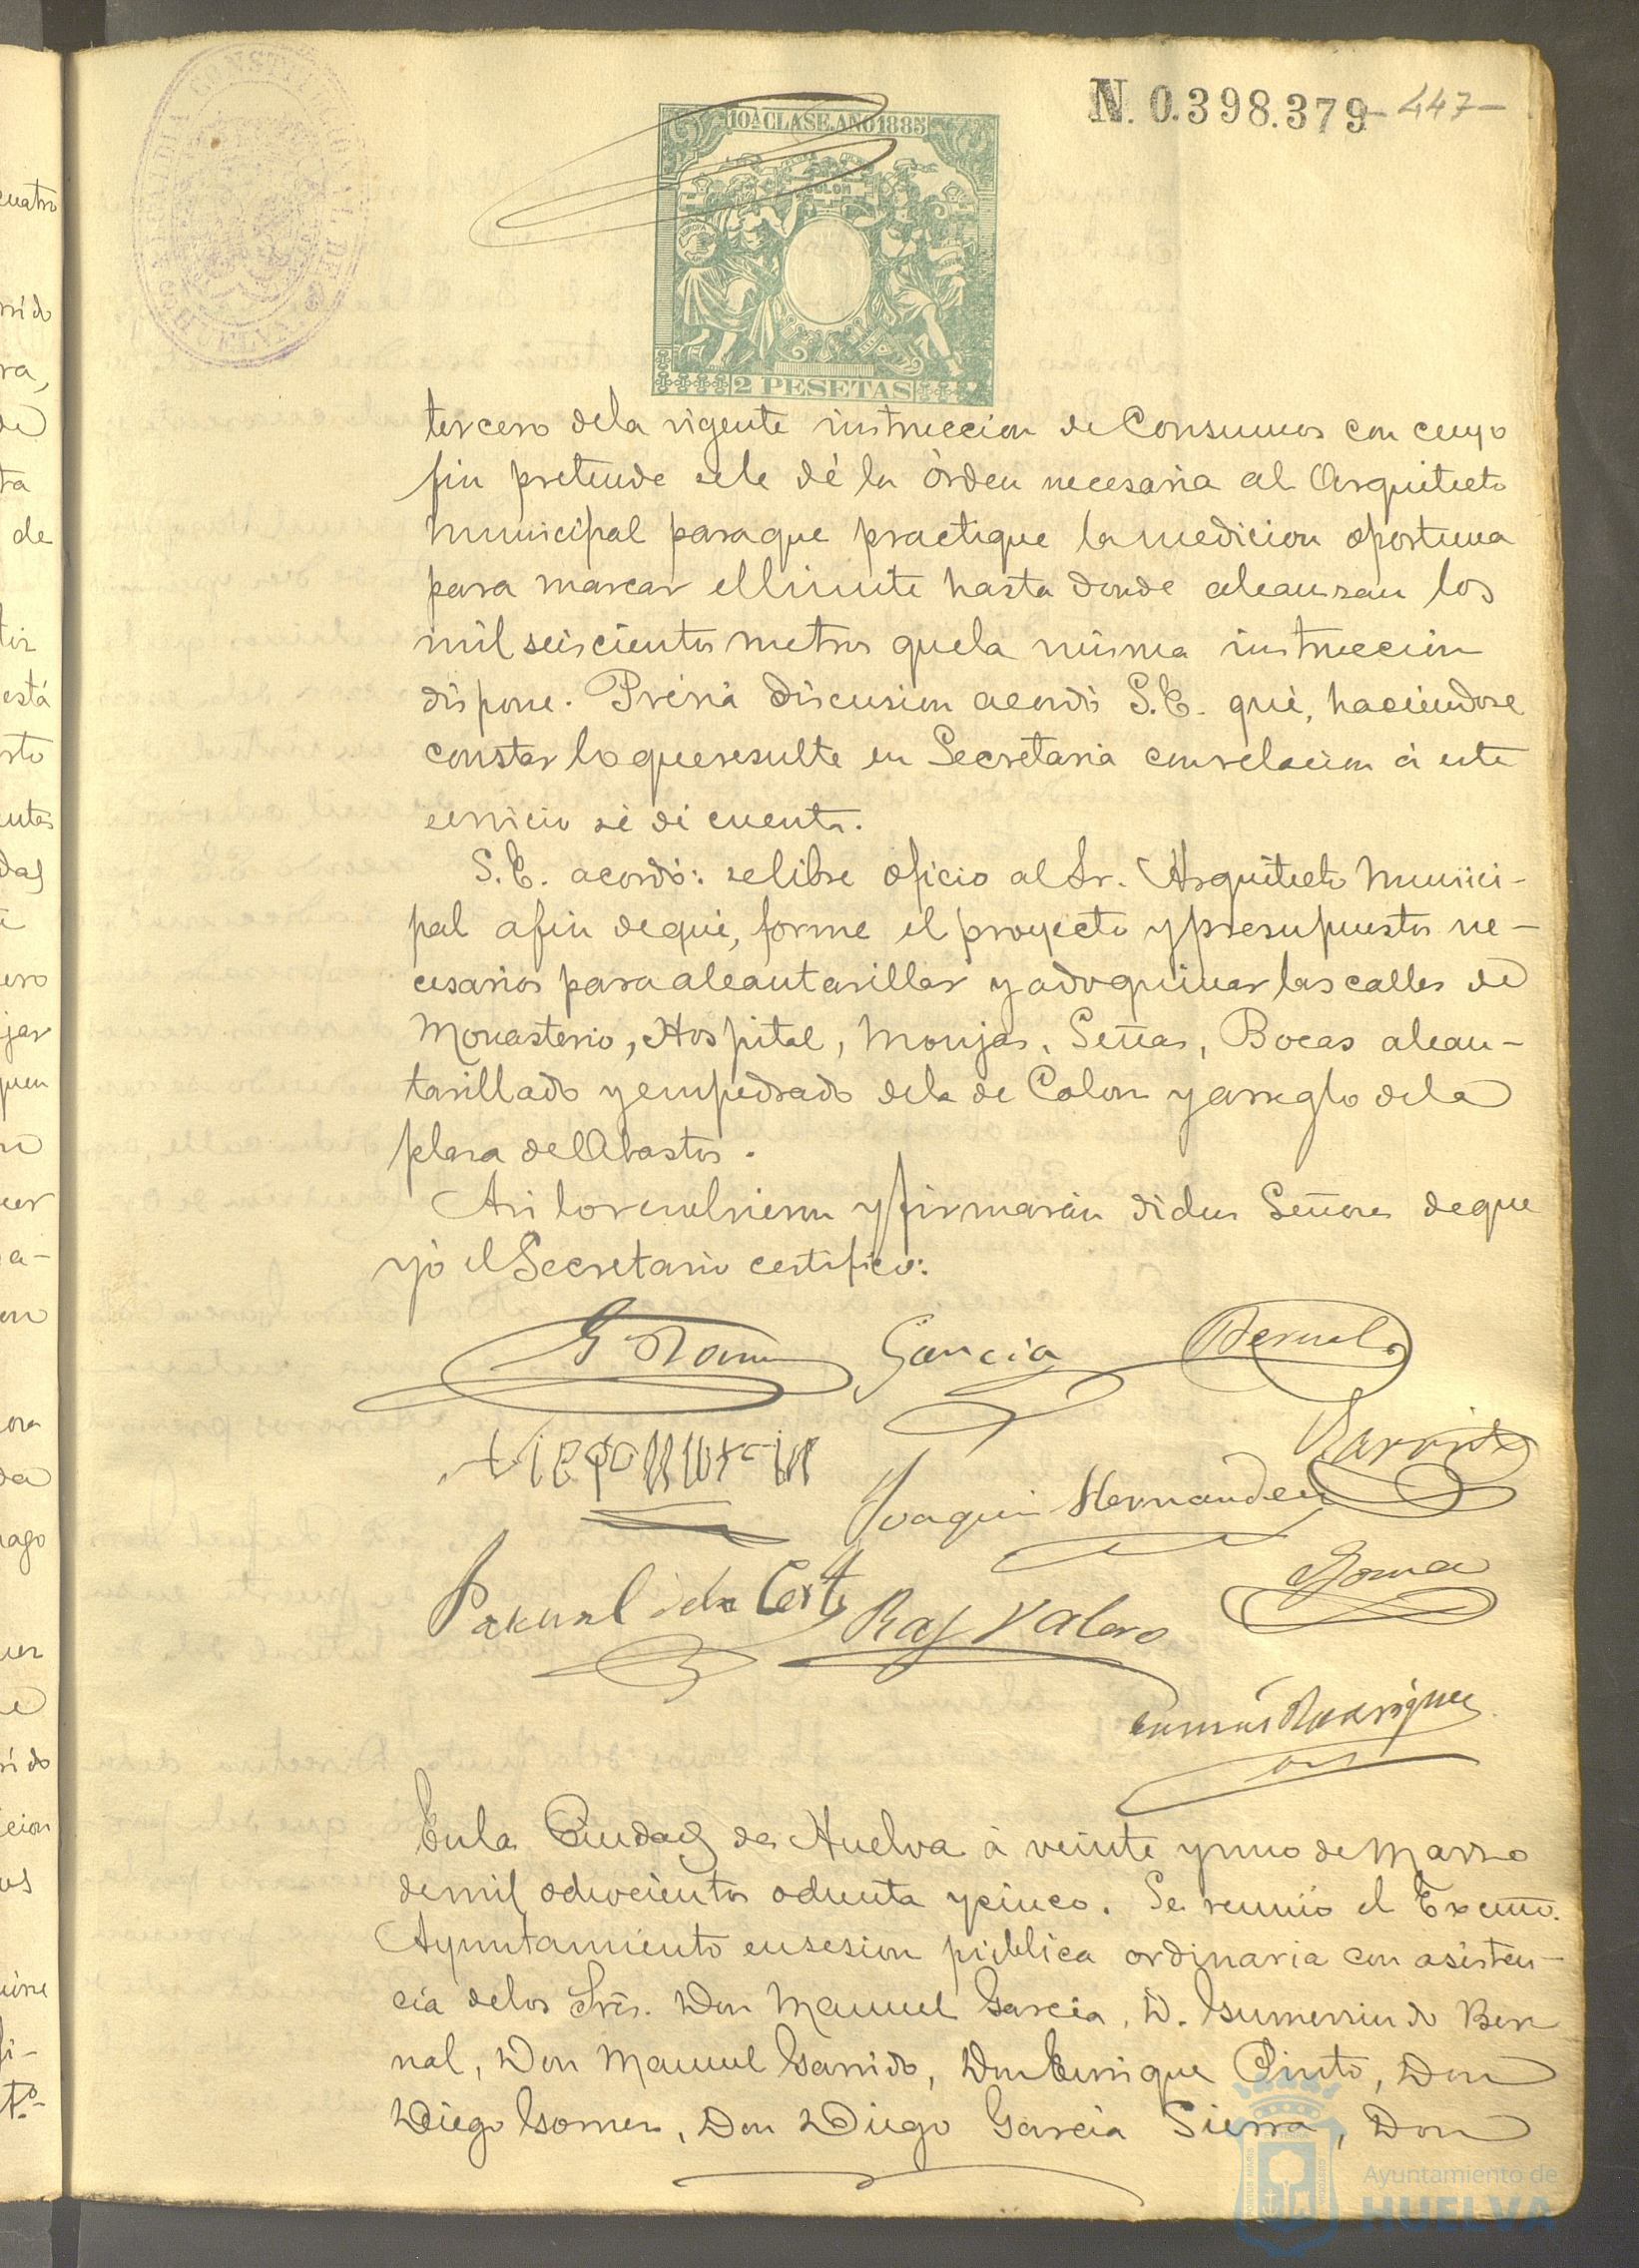 N. 0.398.379 - 447 -
ALCALDIA CONSTITUCIONAL DE HUELVA
10ª CLASE. AÑO 1885
COLON
2 PESETAS
tercero dela vigente instruccion de Consumos con cuyo
fin pretende sele dé la órden necesaria al Arquitecto
Municipal paraque practique la medicion oportuna
para marcar ellimite hasta donde alcansan los
mil seiscientos metros quela misma instruccion
dispone. Prévia discusion acordó S.E. qué, haciendose
constar lo queresulte en Secretaria conrelacion á este
servicio sé dé cuenta.
S.E. acordó: selibre oficio al Sr. Arquitecto Munici-
pal afin dequé, forme el proyecto y presupuestos ne-
cesarios paraalcantarillar y adoquinar lascalles de
Monasterio, Hospital, Monjas, Señas, Bocas alcan-
tarillado y empedrado dela de Colon y arreglo dela
plasa delAbastos.
Asi loresolvieron y firmarán dichos Señores deque
yó el Secretario certifico:
Garcia Bernal
Garrido
Joaquin Hernandez
Pascual dela Corte Raf Valero Gomez
Tomás Rodriguez
Enla Ciudad de Huelva á veinte y uno de Marzo
demil ochocientos ochenta y cinco. Se reunió el Excmo.
Ayuntamiento ensesion pública ordinaria con asisten-
cia delos Srés. Don Manuel Garcia, D. Gumersindo Ber
nal, Don Manuel Garrido, Don Enrique Pinto, Don
Diego Gomez, Don Diego Garcia Sierra, Don
Ayuntamiento de
HUELVA